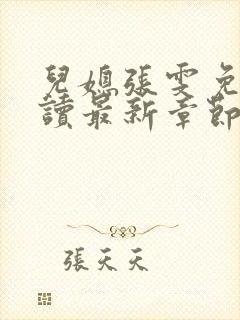 兒媳張雯免
讀最新章節
張天天